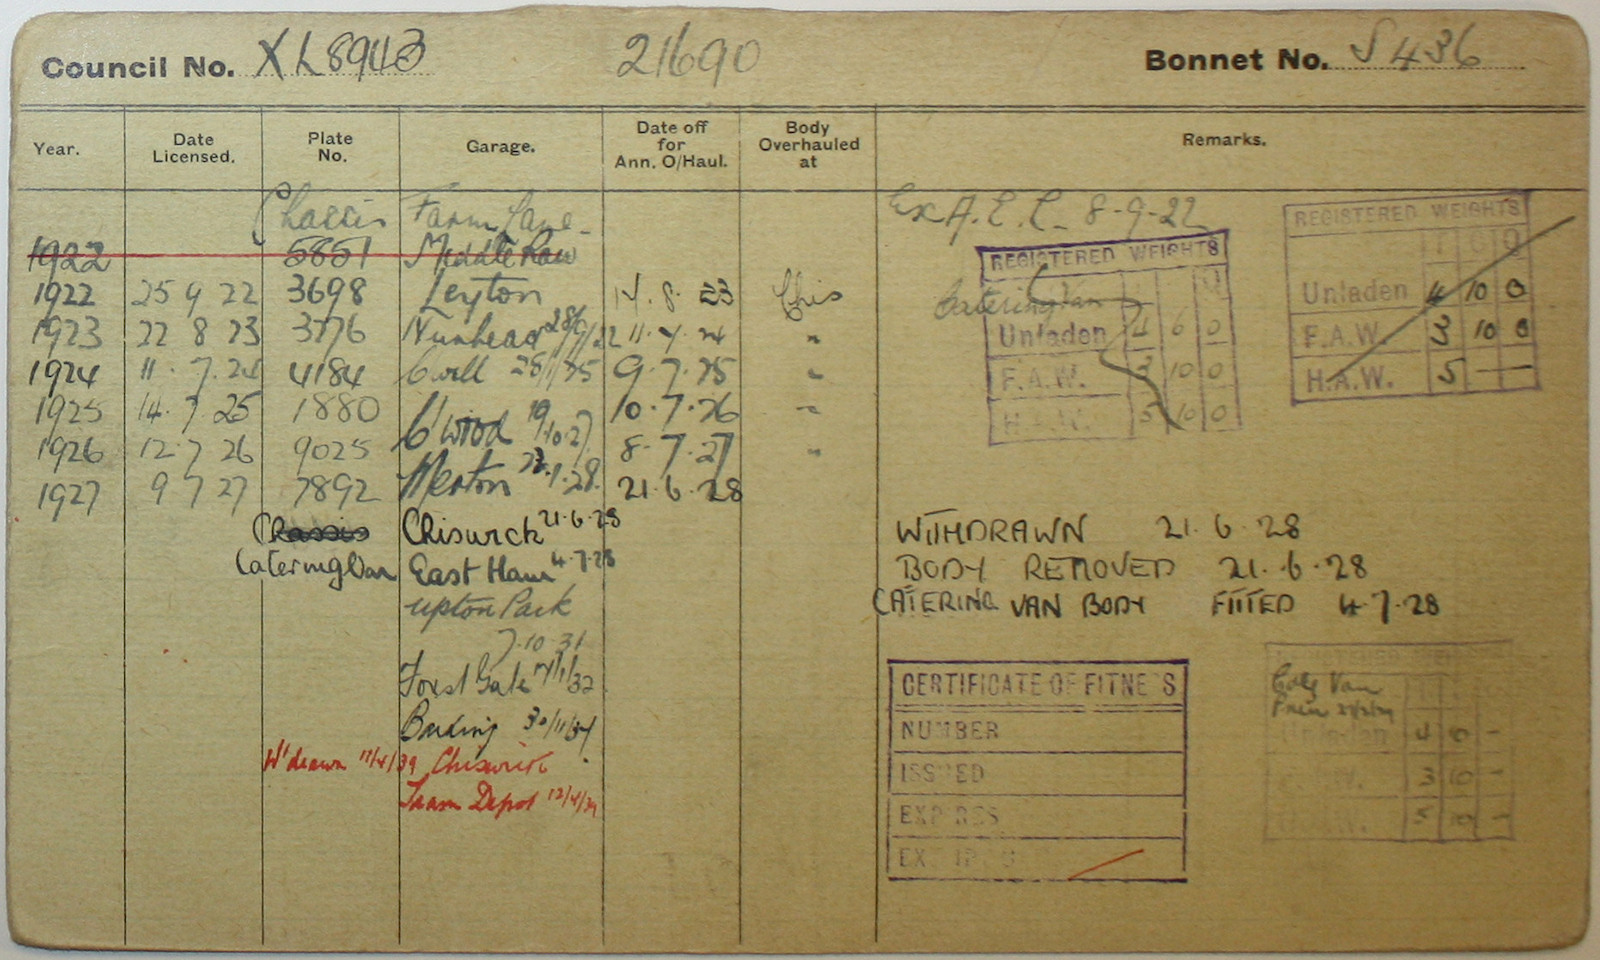 Council No. XL8943 21690 Bonnet No. S436
Year. Date Licensed. Plate No. Garage. Date off for Ann. O/Haul. Body Overhauled at Remarks.
Chassis Farm Lane Ex A.E.C. 8-9-22
1922 5851 Middle Row
1922 25 9 22 3698 Leyton 14.8.23 Chis
1923 22 8 23 3776 Nunhead 28/9/22 11.7.24 "
1924 11.7.24 4184 C'well 28/1/25 9.7.25 "
1925 14.7.25 1880 10.7.26 "
C'wood 19/10.27
1926 12.7.26 9025 8-7.27 "
1927 9 7 27 7892 Merton 23.1.28. 21.6.28
Chassis Chiswick 21.6.28 WITHDRAWN 21.6.28
Catering Van East Ham 4.7.28 BODY REMOVED 21.6.28
Upton Park CATERING VAN BODY FITTED 4.7.28
7.10.31
Forest Gate
Barking 30/11/34
W'drawn Chiswick
Tram Depot
REGISTERED WEIGHTS
Catering Van
Unladen 4 6 0
F.A.W. 3 10 0
H.A.W. 5 10 0
REGISTERED WEIGHTS
T C Q
Unladen 4 10 0
F.A.W. 3 10 0
H.A.W. 5 — —
CERTIFICATE OF FITNESS
NUMBER
ISSUED
EXPIRES
EXPIRES
Van
Unladen 4 10 -
3 10 -
5 10 -